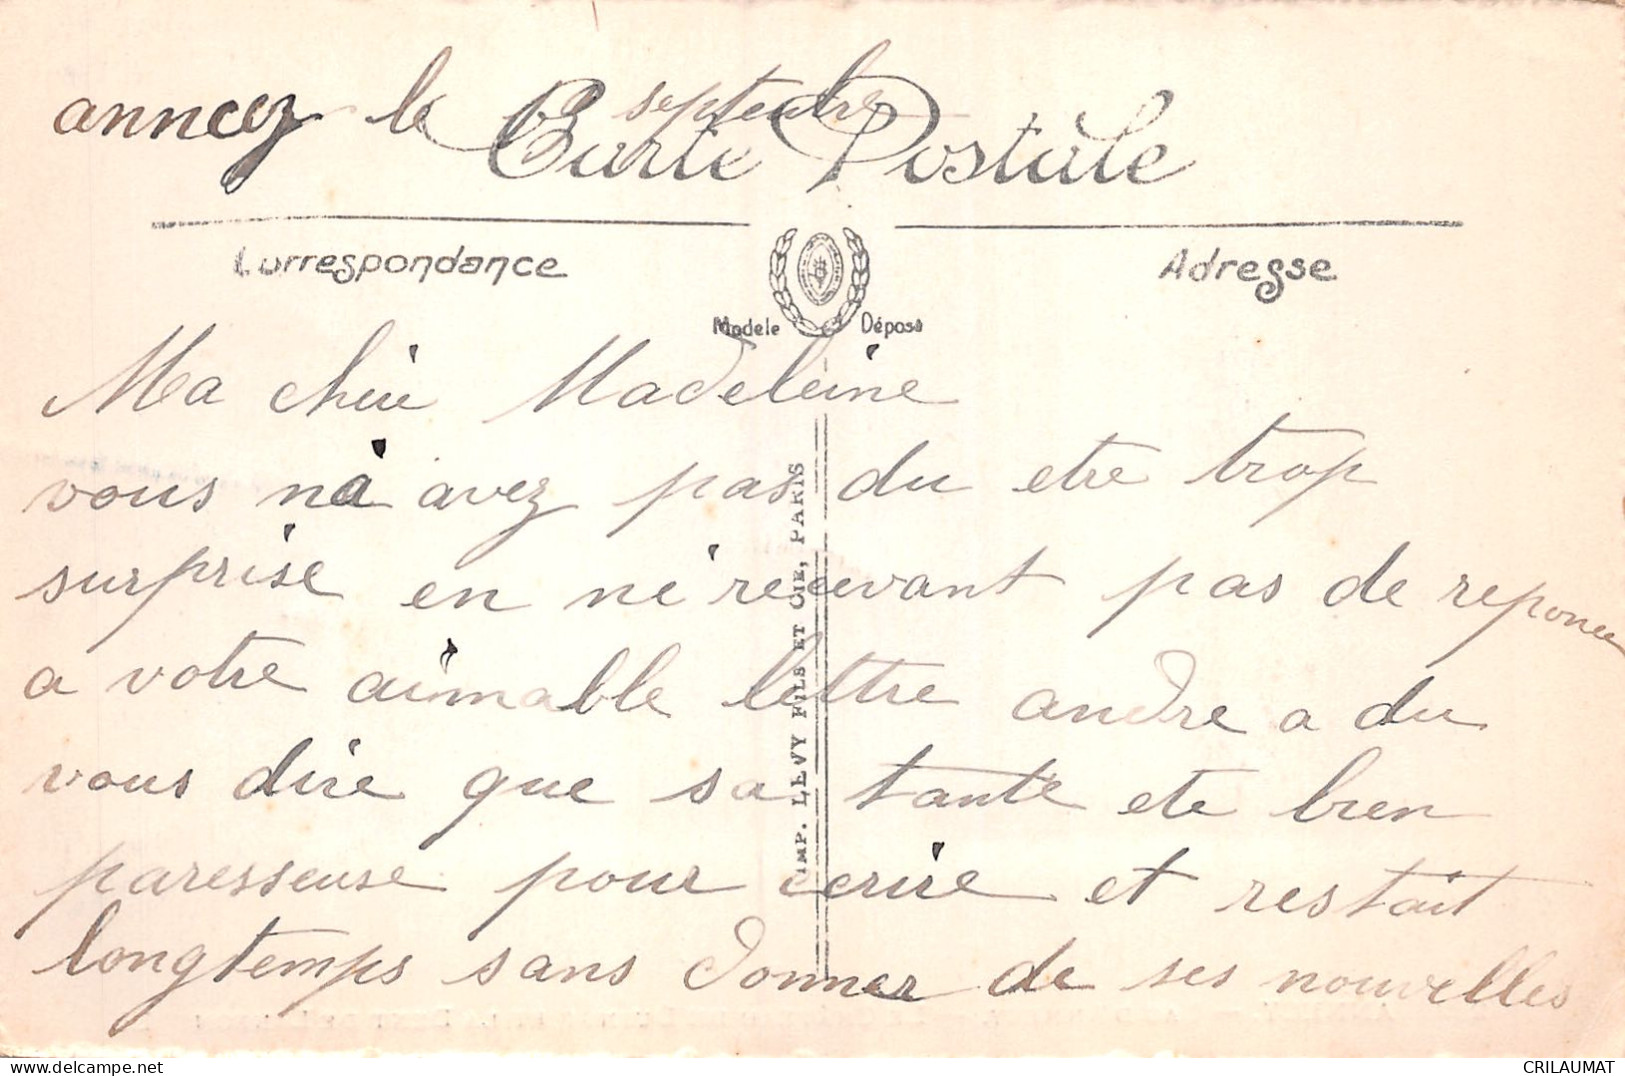 annecy le 13 septembre
Carte Postale
Correspondance
Adresse
Modèle Déposé
Ma chère Madeleine
vous n'a avez pas du etre trop
surprise en ne recevant pas de reponce
a votre aimable lettre andre a du
vous dire que sa tante ete bien
paresseuse pour ecrire et restait
longtemps sans donner de ses nouvelles
IMP. LEVY FILS ET CIE, PARIS
CRILAUMAT